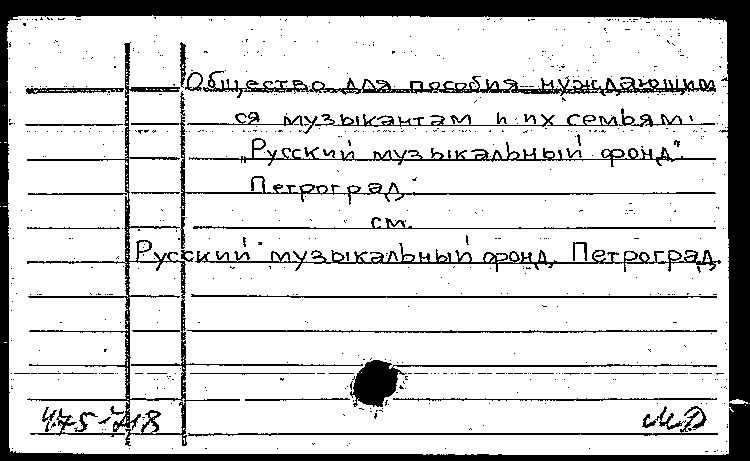 Общество для пособия нуждающим
ся музыкантам и их семьям.
„Русский музыкальный фонд".
Петроград,
см.
Русский музыкальный фонд. Петроград.
475-718
МД